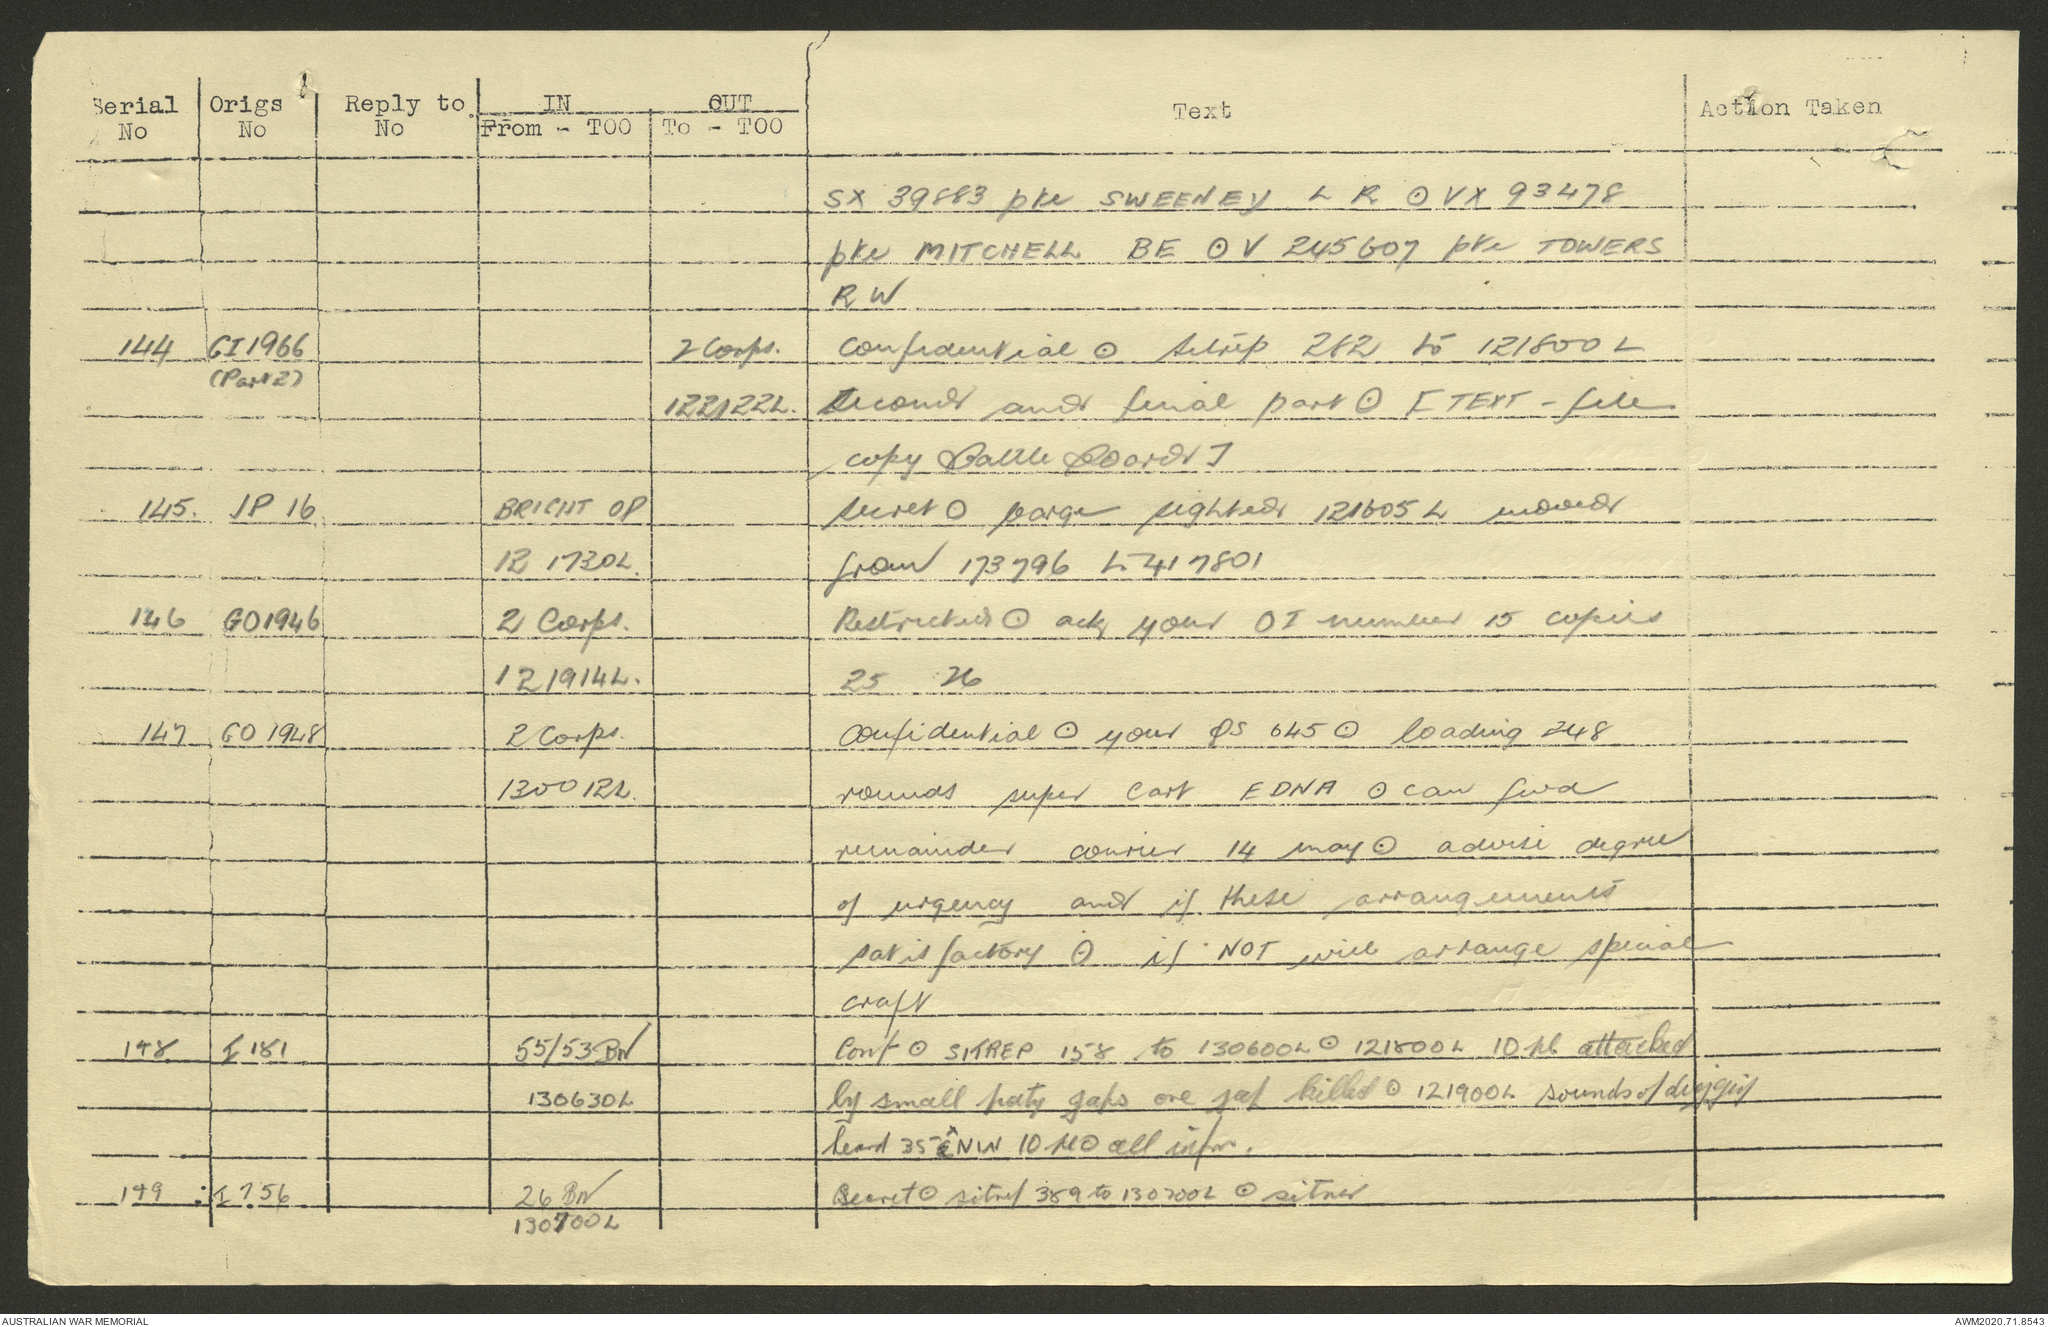 Serial No | Origs No | Reply to No. | IN From - TOO | OUT To - TOO | Text | Action Taken
SX 39883 pte SWEENEY L R ⊙ VX 93478
pte MITCHELL BE ⊙ V 245607 pte TOWERS
R W
144 | GI 1966 (Part 2) | 2 Corps. | Confidential ⊙ sitrep 282 to 121800L
122122L. | second and final part ⊙ [TEXT - file
copy Battle Board]
145. | JP 16 | BRIGHT OP | secret ⊙ barge sighted 121605L moved
12 1730L. | from 173796 to 417801
146 | GO 1946 | 2 Corps. | Restricted ⊙ ack your OI number 15 copies
121914L. | 25 26
147 | GO 1948 | 2 Corps. | Confidential ⊙ your QS 645 ⊙ loading 248
130012L. | rounds super cart EDNA ⊙ can fwd
remainder courier 14 may ⊙ advise degree
of urgency and if these arrangements
satisfactory ⊙ if NOT will arrange special
craft
148 | I 181 | 55/53 BN | Conf ⊙ SITREP 158 to 130600L ⊙ 121800L 10 pl attacked
130630L | by small paty japs one jap killed ⊙ 121900L sounds of digging
heard 35 NW 10 pl ⊙ all infm.
149 | I 756 | 26 BN | Secret ⊙ sitrep 389 to 130700L ⊙ sitrep
130700L
AUSTRALIAN WAR MEMORIAL
AWM2020.71.8543